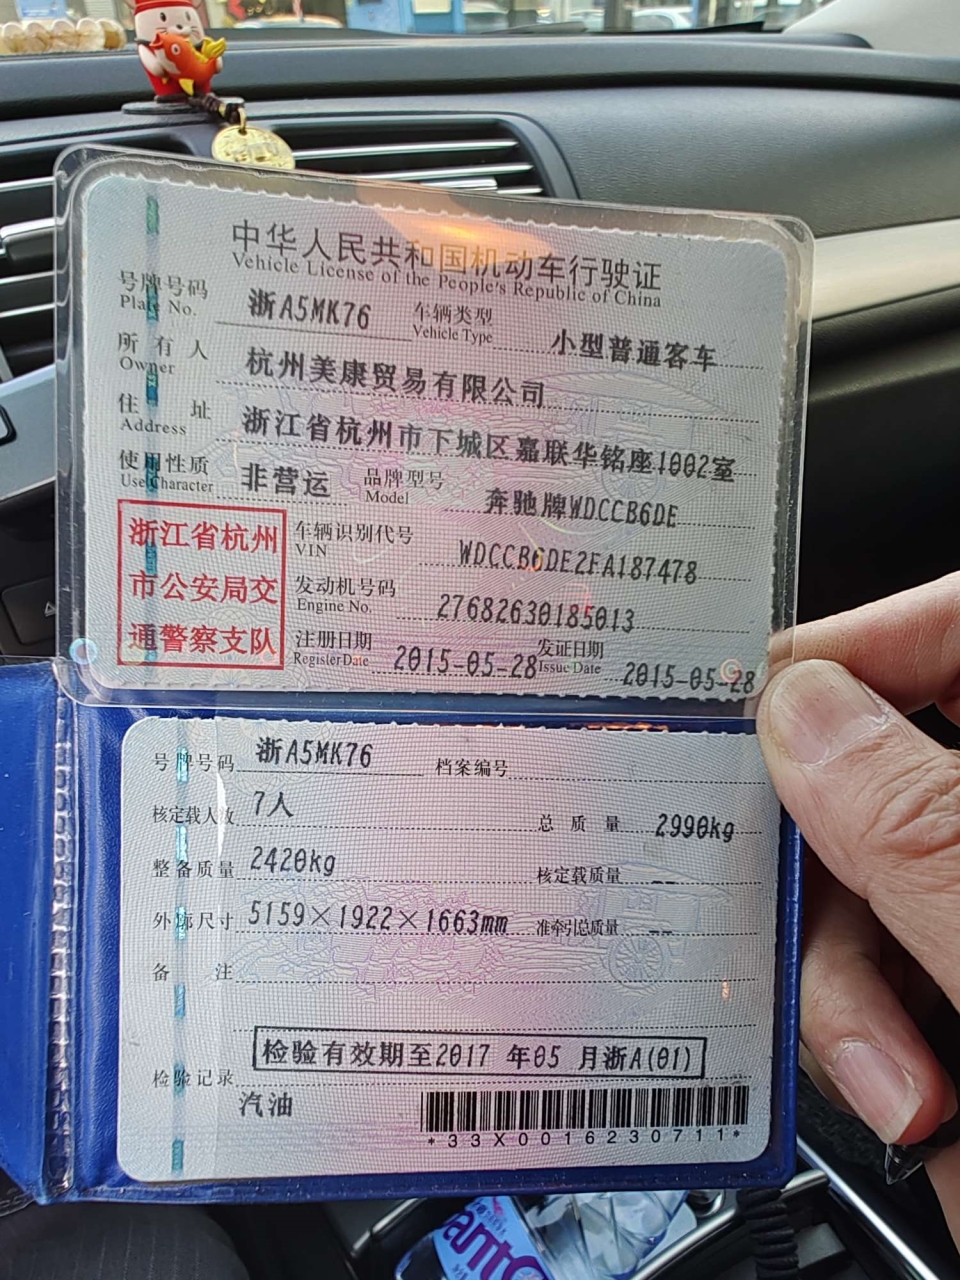 中华人民共和国机动车行驶证
Vehicle License of the People's Republic of China
号牌号码 浙A5MK76 车辆类型 小型普通客车
Plate No. Vehicle Type
所有人 杭州美康贸易有限公司
Owner
住址 浙江省杭州市下城区嘉联华铭座1002室
Address
使用性质 非营运 品牌型号 奔驰牌WDCCB6DE
Use Character Model
浙江省杭州
市公安局交
通警察支队
车辆识别代号 WDCCB6DE2FA187478
VIN
发动机号码 27682630185013
Engine No.
注册日期 2015-05-28 发证日期 2015-05-28
Register Date Issue Date
号牌号码 浙A5MK76 档案编号
核定载人数 7人 总质量 2990kg
整备质量 2420kg 核定载质量 --
外廓尺寸 5159×1922×1663mm 准牵引总质量 --
备注
检验有效期至2017 年05 月浙A(01)
检验记录
汽油
*33X0016230711*